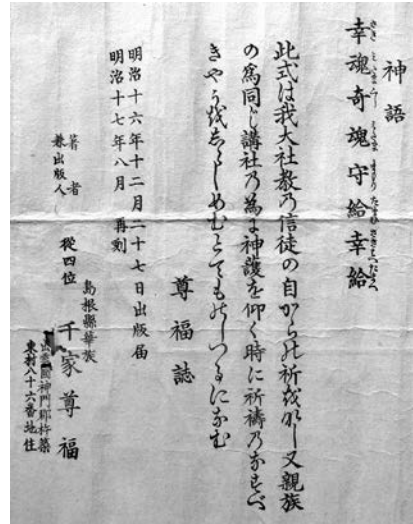 神語
幸魂奇魂守給幸給
此式は我大社教乃信徒の自から祈越し又親族
の為同じ講社乃為よ神護を仰く時に祈祷乃なすべ
きやう越志らしめむとてものしつるになむ
尊福誌
明治十六年十二月二十七日出版届
明治十七年八月 再刻
著者
兼出版人
島根縣華族
從四位 千家尊福
出雲國神門郡杵築
東村八十六番地住